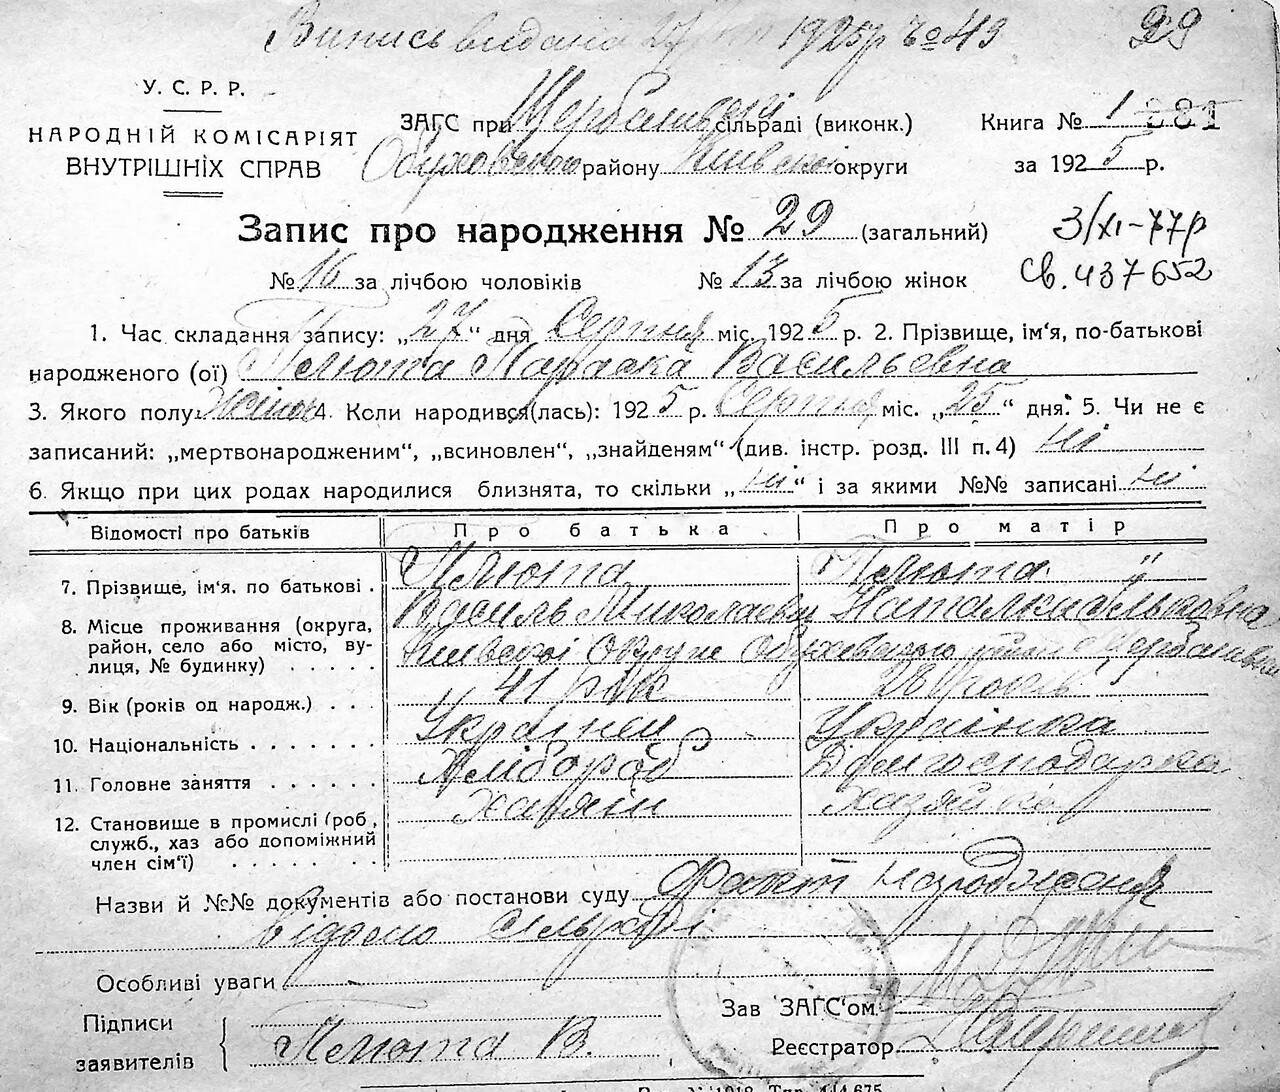 Випись видана 27 1925р № 49 29
У. С. Р. Р.
НАРОДНІЙ КОМІСАРІЯТ
ВНУТРІШНІХ СПРАВ
ЗАГС при Щербанівскі сільраді (виконк.) Книга № 1 881
Обуховского району Київскої округи за 1925 р.
Запис про народження № 29 (загальний) 3/XI-77р
№ 16 за лічбою чоловіків № 13 за лічбою жінок Св. 437652
1. Час складання запису: „27“ дня Серпня міс. 1925 р. 2. Прізвище, ім‘я, по-батькові
народженого (ої) Плюта Параска Васильевна
3. Якого полу: жіноч 4. Коли народився(лась): 1925 р. Серпня міс. „25“ дня. 5. Чи не є
записаний: „мертвонародженим“, „всиновлен“, „знайденям“ (див. інстр. розд. III п. 4) ні
6. Якщо при цих родах народилися близнята, то скільки „ні“ і за якими №№ записані ні
Відомості про батьків Про батька Про матір
7. Прізвище, ім‘я, по батькові . Плюта Плюта "
Василь Миколаевич Наталка
8. Місце проживання (округа, район, село або місто, вулиця, № будинку) . . . . . Київскої Округи Обуховського
9. Вік (років од народж.) . . . 41 рік 28 років
10. Національність . . . . . . . Українец Українка
11. Головне заняття . . . . . . Хлібороб Домгосподарка
12. Становище в промислі (роб., служб., хаз або допоміжний член сім‘ї) . . . . . . . . хазяїн хазяйка
Назви й №№ документів або постанови суду Факт народження
відомо сільраді
Особливі уваги
Зав ЗАГС‘ом
Підписи заявителів Плюта В.
Реєстратор